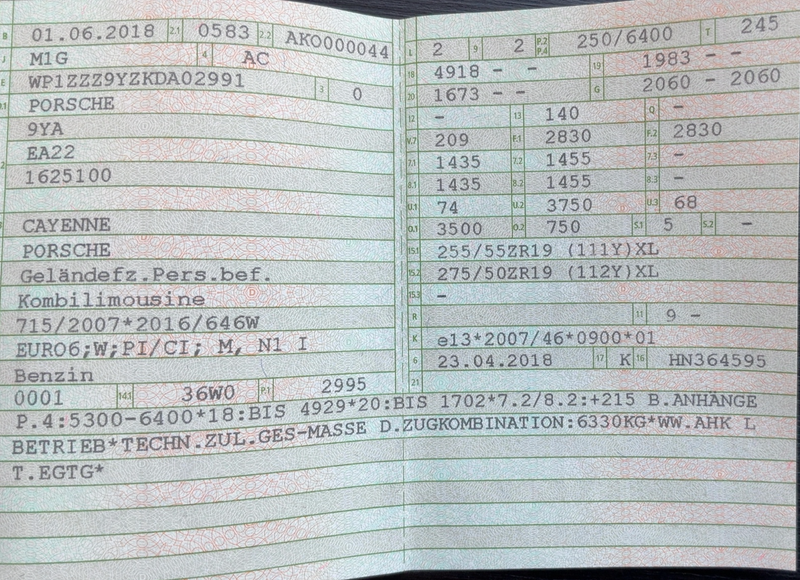 B 01.06.2018 2.1 0583 2.2 AKO000044
J M1G 4 AC
E WP1ZZZ9YZKDA02991 3 0
PORSCHE
9YA
EA22
1625100
CAYENNE
PORSCHE
Geländefz.Pers.bef.
Kombilimousine
715/2007*2016/646W
EURO6;W;PI/CI; M, N1 I
Benzin
0001 14.1 36W0 P.1 2995
L 2 9 2 P.2 P.4 250/6400 T 245
18 4918 - - 19 1983 - -
20 1673 - - G 2060 - 2060
12 - 13 140 Q -
V.7 209 F.1 2830 F.2 2830
7.1 1435 7.2 1455 7.3 -
8.1 1435 8.2 1455 8.3 -
U.1 74 U.2 3750 U.3 68
O.1 3500 O.2 750 S.1 5 S.2 -
15.1 255/55ZR19 (111Y)XL
15.2 275/50ZR19 (112Y)XL
15.3 -
R 11 9 -
K e13*2007/46*0900*01
6 23.04.2018 17 K 16 HN364595
21
P.4:5300-6400*18:BIS 4929*20:BIS 1702*7.2/8.2:+215 B.ANHÄNGE
BETRIEB*TECHN.ZUL.GES-MASSE D.ZUGKOMBINATION:6330KG*WW.AHK L
T.EGTG*